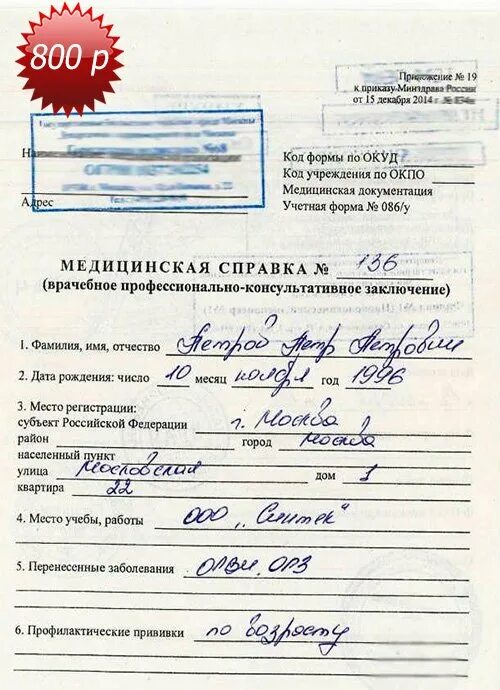 800 р
Приложение № 19
к приказу Минздрава России
от 15 декабря 2014 г
Адрес
Код формы по ОКУД
Код учреждения по ОКПО
Медицинская документация
Учетная форма № 086/у
МЕДИЦИНСКАЯ СПРАВКА № 136
(врачебное профессионально-консультативное заключение)
1. Фамилия, имя, отчество Петров Петр Петрович
2. Дата рождения: число 10 месяц ноября год 1996
3. Место регистрации:
субъект Российской Федерации г. Москва
район город Москва
населенный пункт
улица Московская дом 1
квартира 22
4. Место учебы, работы ООО „Синтек"
5. Перенесенные заболевания ОРВИ, ОРЗ
6. Профилактические прививки по возрасту